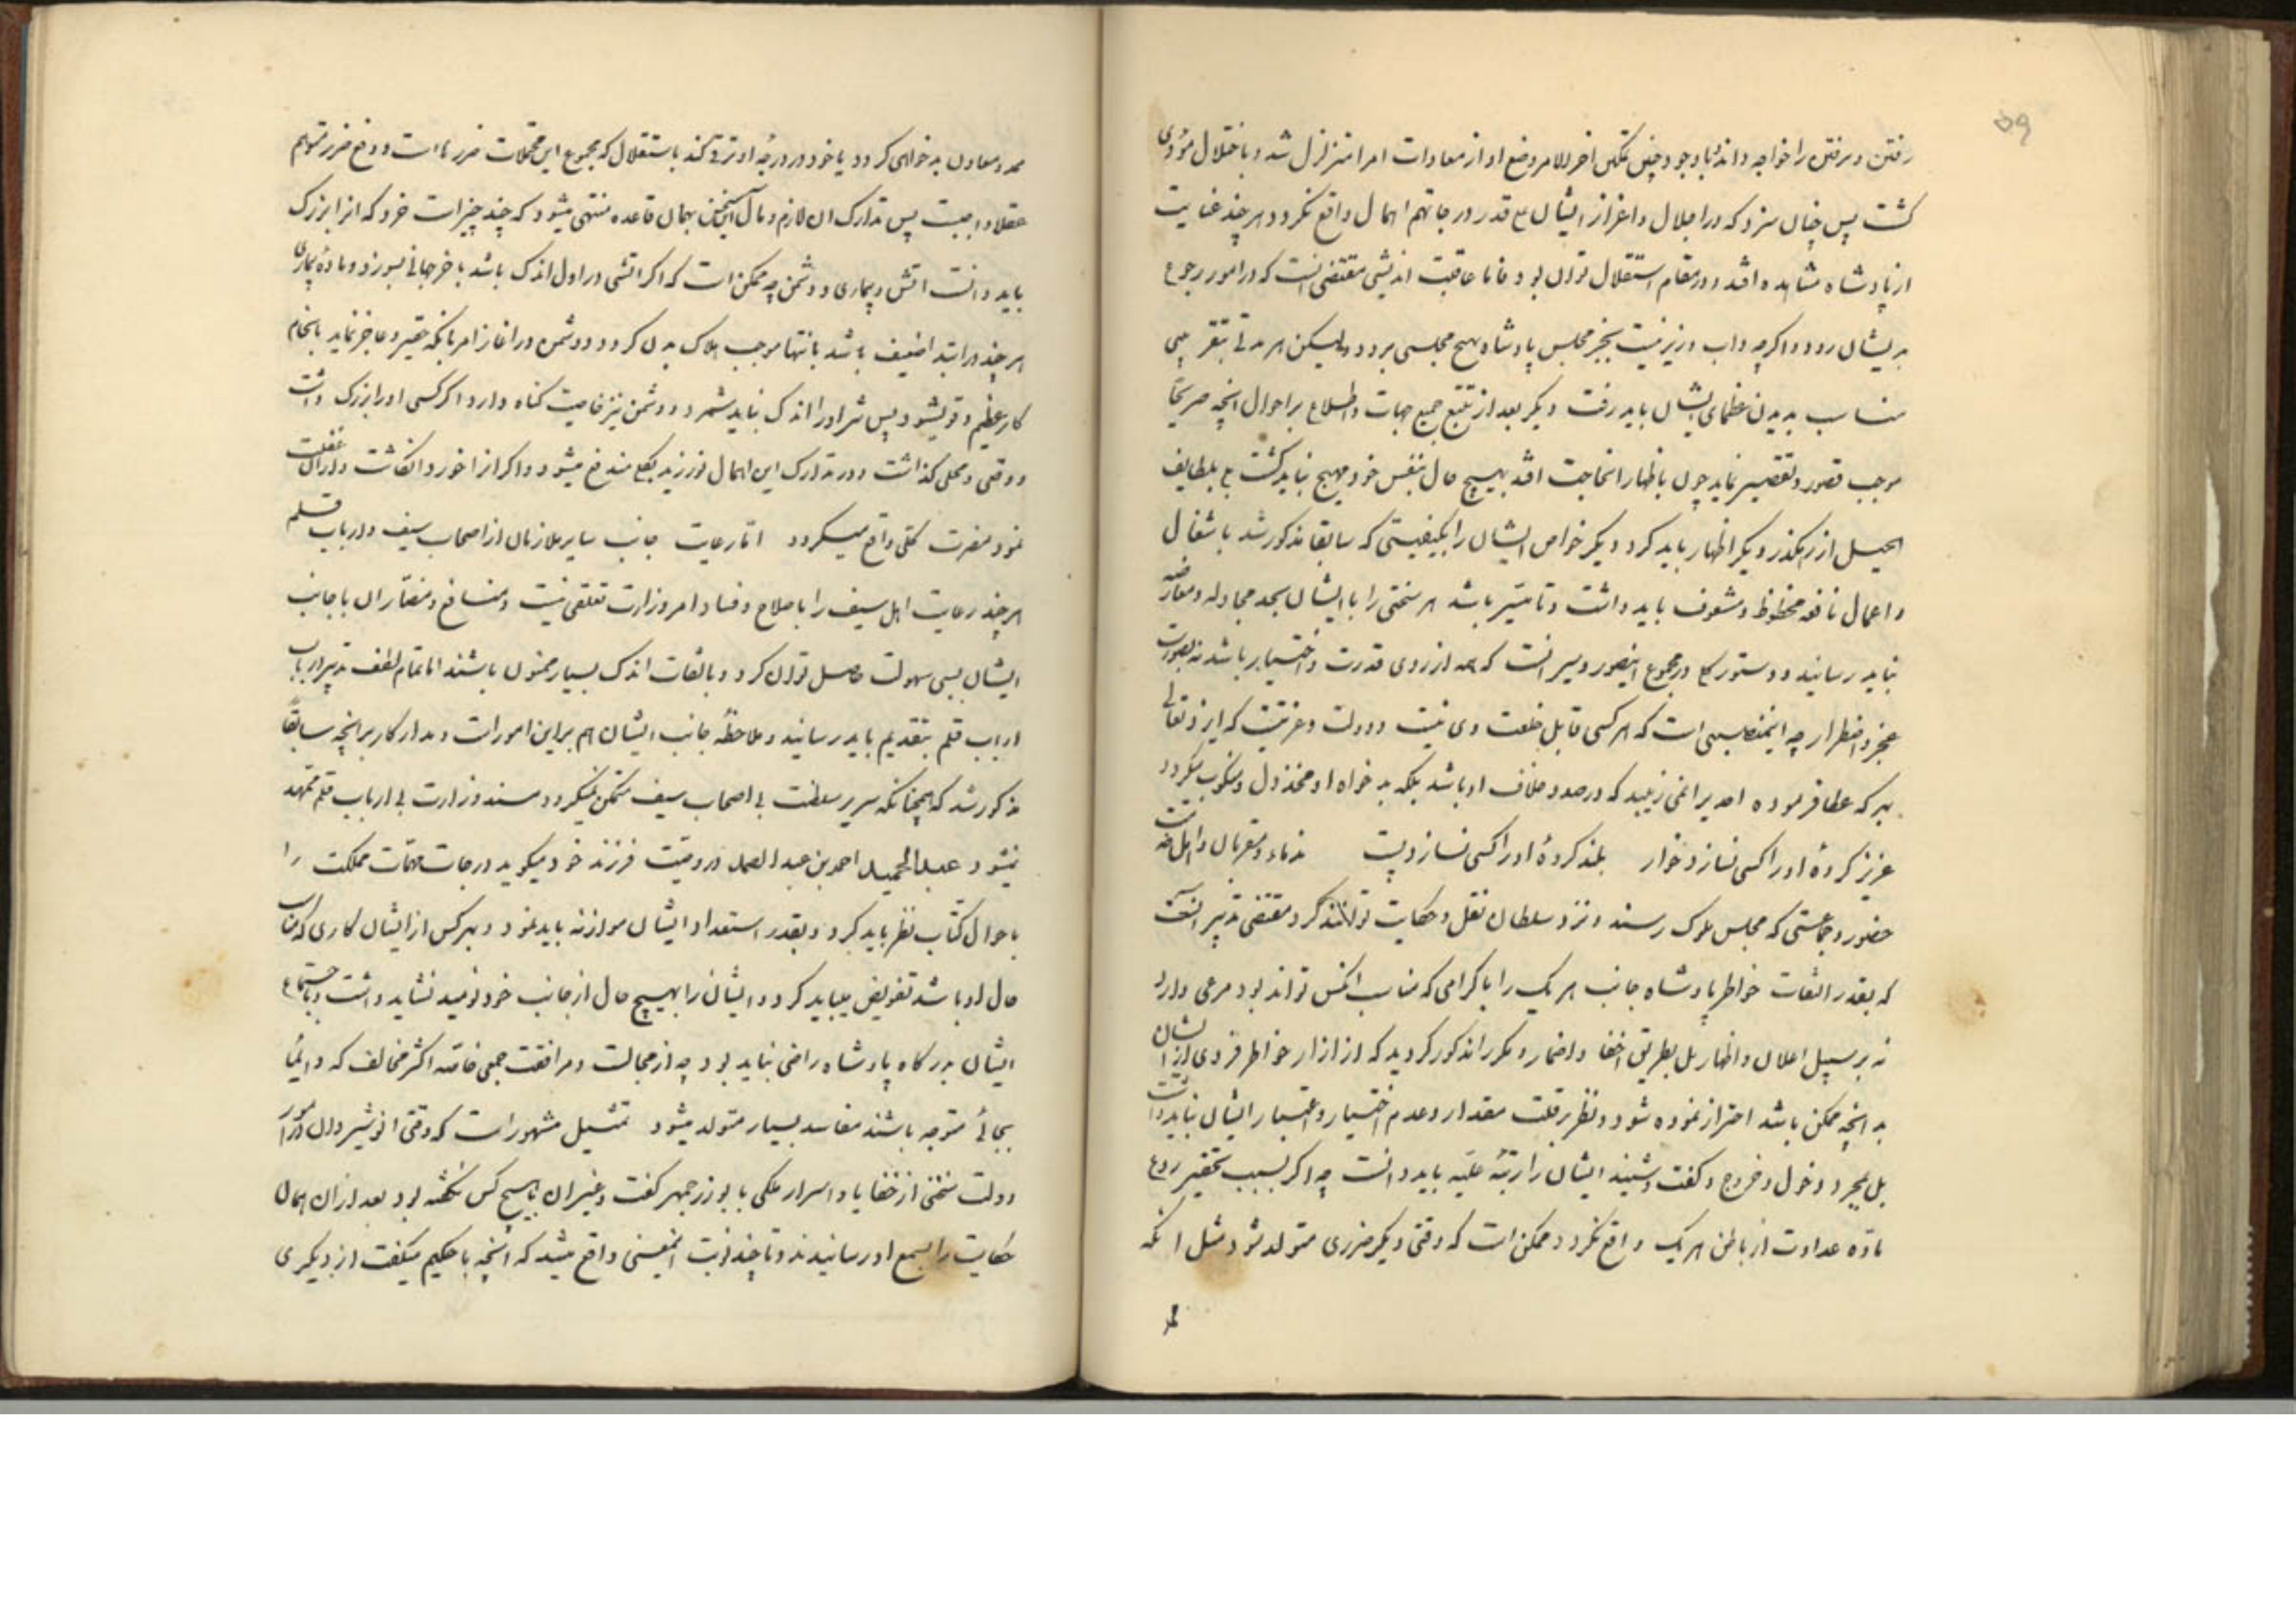 ۵۹
رفتن و نرفتن را خواجه داند با وجود چنین تمکین اخرالامر وضع او از معادات امرا متزلزل شد و باختلال مؤدی
کشت پس چنان سزد که در اجلال و اعزاز ایشان قدر درجاتهم اهمال واقع نکردد و هر چند عنایت
از پادشاه مشاهده افتد و در مقام استقلال توان بود فاما عاقبت اندیشی مقتضی انست که در امور رجوع
بدیشان رود و اکرچه داب وزیر نیست بجز مجلس پادشاه بهیچ مجلسی برود ولیکن هر مدتی بتقریبی
مناسب بدیدن عظمای ایشان باید رفت دیکر بعد از تتبع جمیع جهات و اطلاع بر احوال انچه صریحا
موجب قصور و تقصیر نماید چون باظهار انحاجت افتد بهیچ حال بنفس خود مهیج نباید کشت بلطایف
الحیل از رهکذر دیکر اظهار باید کرد دیکر خواص ایشان را بکیفیتی که سابقا مذکور شد باشغال
و اعمال نافعه محظوظ و مشعوف باید داشت و تا میسر باشد هر سخنی را با ایشان بسجد مجادله و معارضه
نباید رسانید و دستور در مجموع اینصور و سیر انست که همه از روی قدرت و اختیار باشد نه بصورت
عجز و اضطرار چه اینمنصبی است که هر کسی قابل خلعت وی نیست و دولت و عزتیست که ایزد تعالی
بهر که عطا فرموده احدیرا نمی زیبد که در صدد خلاف او باشد بلکه بدخواه او مخذول و منکوب میکردد
عزیز کردهٔ او را کسی نسازد خوار بلند کردهٔ او را کسی نسازد پست ندماء و مقربان و اهل
حضور و جماعتی که مجلس ملوک رسند و نزد سلطان نقل و حکایت توانند کرد مقتضی تدبیر انست
که بقدر التفات خواطر پادشاه جانب هر یک را با کرامی که مناسب انکس تواند بود مرعی دارد
نه بر سبیل اعلان و اظهار بل بطریق اخفا و اضمار و مکرر مذکور کردید که از ازار خواطر فردی از ایشان
بد انچه ممکن باشد احتراز نموده شود و نظر بر قلت مقدار و عدم اختیار و اعتبار ایشان نباید داشت
بل بمجرد دخول و خروج و کفت و شنید ایشان را رتبهٔ علیه باید دانست چه اکر بسبب تحقیر
ماده عداوت از باطن هر یک واقع نکردد ممکن است که وقتی دیکر ضرری متولد شود مثل انکه
ممد و معاون بدخواهی کردد یا خود در درجهٔ او ترقی کند باستقلال که مجموع این محتملات ضررهاست و دفع ضرر متوهم
عقلا واجبست پس تدارک ان لازم و مال این سخن بهمان قاعده منتهی میشود که چند چیز است خرد که انرا بزرک
باید دانست اتش و بیماری و دشمن چه ممکن است که اکر اتشی در اول اندک باشد باخر جهانی بسوزد و مادهٔ بیماری
هر چند در ابتدا ضعیف باشد بانتها موجب هلاک بدن کردد و دشمن در اغاز امر بانکه حقیر و عاجز نماید بانجام
کار عظیم و قوی شود پس شر او را اندک نباید شمرد و دشمن نیز خاصیت کناه دارد اکر کسی او را بزرک داشت
و وقعی و محلی کذاشت و در تدارک این اهمال نورزید بکلی مندفع میشود و اکر از اخورد انکاشت و در ان غفلت
نمود مضرت کلی واقع میکردد اما رعایت جانب سایر ملازمان از اصحاب سیف و ارباب قلم
هر چند رعایت اهل سیف را باصلاح و فساد امر وزارت تعلقی نیست و منافع و مضار ان با جانب
ایشان بسی سهولت حاصل توان کرد و بالتفات اندک بسیار ممنون باشند اما تمام لطف تدبیر در باب
ارباب قلم بتقدیم باید رسانید و ملاحظهٔ جانب ایشان اهم براین امور است و مدار کار بر انچه سابقا
مذکور شد که همچنانکه سریر سلطنت بی اصحاب سیف متمکن نمیکردد مسند وزارت بی ارباب قلم ممهد
نمیشود عبد الحمید احمد بن عبد الصمد در وصیت فرزند خود میکوید در جات مهمات مملکت را
باحوال کتاب نظر باید کرد و بقدر استعداد ایشان موازنه باید نمود و بهر کس از ایشان کاری که مناسب
حال او باشد تفویض میباید کرد و ایشان را بهیچ حال از جانب خود نومید نشاید داشت و باجتماع
ایشان بدرکاه پادشاه راضی نباید بود چه از مجالست و مرافقت جمعی خاصه اکثر مخالف که دایما
بجائی متوجه باشند مفاسد بسیار متولد میشود تمثیل مشهور است که وقتی انوشیروان در امور
دولت سخنی از خفایا و اسرار ملکی با بوزرجمهر کفت و غیر ان با هیچ کس نکفته بود بعد از ان همان
حکایت را بسمع او رسانیدند و تا چند نوبت اینمعنی واقع میشد که انچه با حکیم میکفت از دیکری